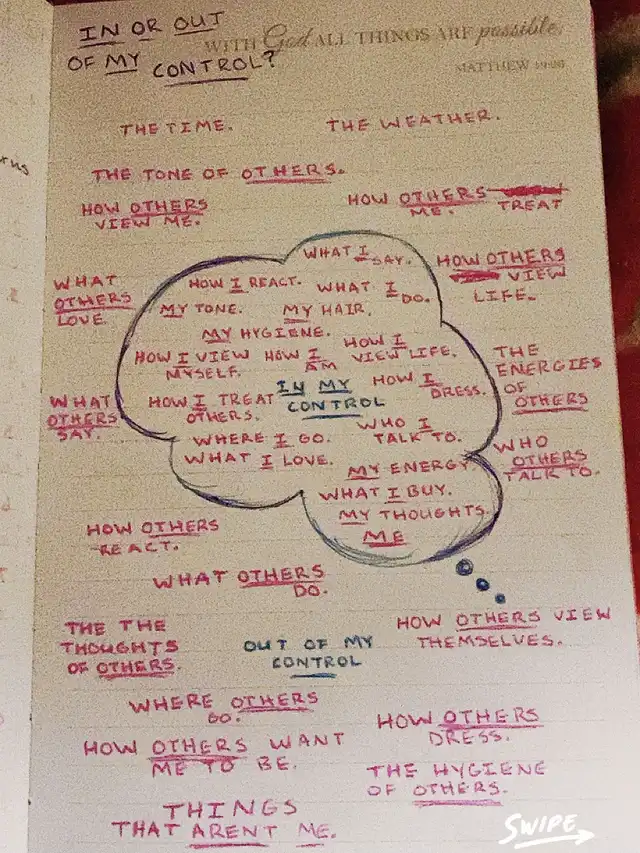 IN OR OUT
OF MY CONTROL?
WITH God ALL THINGS ARE possible.
MATTHEW 19:26
THE TIME.
THE WEATHER.
THE TONE OF OTHERS.
HOW OTHERS
VIEW ME.
HOW OTHERS TREAT
ME.
WHAT
OTHERS
LOVE.
HOW OTHERS
VIEW
LIFE.
WHAT I SAY.
HOW I REACT.
WHAT I DO.
MY TONE.
MY HAIR.
MY HYGIENE.
HOW I VIEW
MYSELF.
HOW I
AM
HOW I
VIEW LIFE.
IN MY
CONTROL
HOW I
DRESS.
HOW I TREAT
OTHERS.
WHO I
TALK TO.
WHERE I GO.
WHAT I LOVE.
MY ENERGY
WHAT I BUY.
MY THOUGHTS.
ME
WHAT
OTHERS
SAY.
THE
ENERGIES
OF
OTHERS
WHO
OTHERS
TALK TO.
HOW OTHERS
REACT.
WHAT OTHERS
DO.
THE THE
THOUGHTS
OF OTHERS.
OUT OF MY
CONTROL
HOW OTHERS VIEW
THEMSELVES.
WHERE OTHERS
GO.
HOW OTHERS
DRESS.
HOW OTHERS WANT
ME TO BE.
THE HYGIENE
OF OTHERS.
THINGS
THAT ARENT ME.
SWIPE